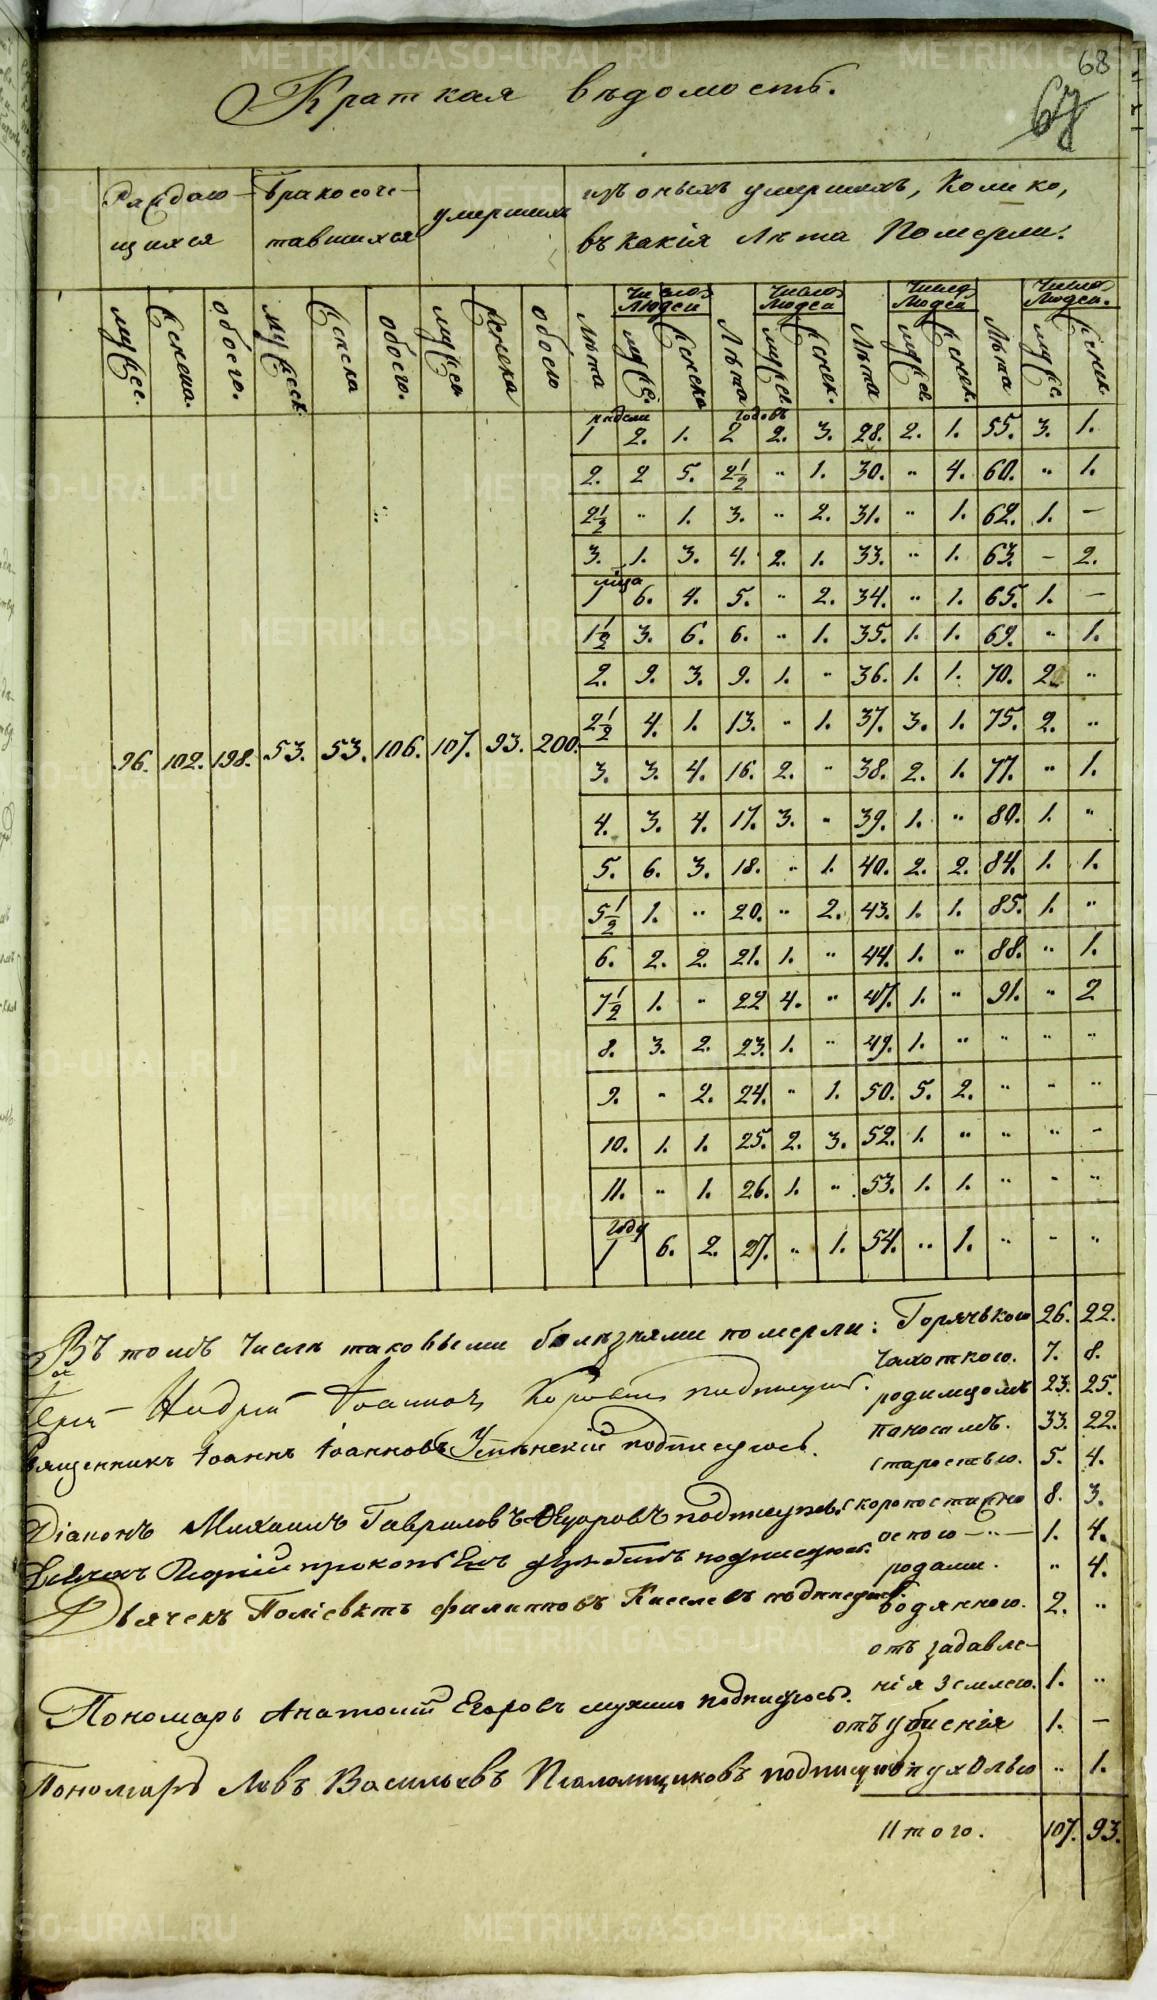 METRIKI.GASO-URAL.RU
68
67
Краткая вѣдомость.
Раждаю-
щихся
Бракосоче-
тавшихся
умершихъ
изъ оныхъ умершихъ, Колико,
въ какія Лѣта Померли.
Число Людей
Число Людей
Число Людей
Число Людей.
мужес. женска. обоего. мужеск женска обоего. мужеск женска обоего Лѣта мужс. женска Лѣта мужес. женск. Лѣта мужес. женск. Лѣта мужс. женск.
недели
годовъ
1 2. 1. 2 2. 3. 28. 2. 1. 55. 3. 1.
2. 2 5. 2½ " 1. 30. " 4. 60. " 1.
2½ " 1. 3. " 2. 31. " 1. 62. 1. —
3. 1. 3. 4. 2. 1. 33. " 1. 63. — 2.
мца
1 6. 4. 5. " 2. 34. " 1. 65. 1. —
1½ 3. 6. 6. " 1. 35. 1. 1. 69. " 1.
2. 9. 3. 9. 1. " 36. 1. 1. 70. 2. "
2½ 4. 1. 13. " 1. 37. 3. 1. 75. 2. "
96. 102. 198. 53. 53. 106. 107. 93. 200.
3. 3. 4. 16. 2. " 38. 2. 1. 77. " 1.
4. 3. 4. 17. 3. " 39. 1. " 80. 1. "
5. 6. 3. 18. " 1. 40. 2. 2. 84. 1. 1.
5½ 1. " 20. " 2. 43. 1. 1. 85. 1. "
6. 2. 2. 21. 1. " 44. 1. " 88. " 1.
7½ 1. " 22 4. " 47. 1. " 91. " 2
8. 3. 2. 23. 1. " 49. 1. " " " "
9. " 2. 24. " 1. 50. 5. 2. " " "
10. 1. 1. 25. 2. 3. 52. 1. " " " "
11. " 1. 26. 1. " 53. 1. 1. " " "
году
1 6. 2. 27. " 1. 54. " 1. " " "
Въ томъ числѣ таковыми болѣзнями померли: Горячькою 26. 22.
Чахоткою. 7. 8.
Андрей Іоанновъ подписуюсь.
родимцомъ 23. 25.
поносомъ. 33. 22.
Священникъ Іоаннъ Іоанновъ Успѣнскій подписуюсь.
старостью. 5. 4.
скоропостижно 8. 3.
Діаконъ Михаилъ Гавриловъ Ѳедоровъ подписуюсь.
оспою — " — 1. 4.
подписуюсь.
родами. " 4.
Дьячекъ Поліевктъ Филипповъ Киселевъ подписуюсь.
водянкою. 2. "
отъ задавле-
нія Землею. 1. "
Пономарь Анатолій Егоровъ подписуюсь.
отъ убиенія 1. —
Пономарь Левъ Васильевъ Псаломщиковъ подписуюсь
опухолью " 1.
Итого. 107. 93.